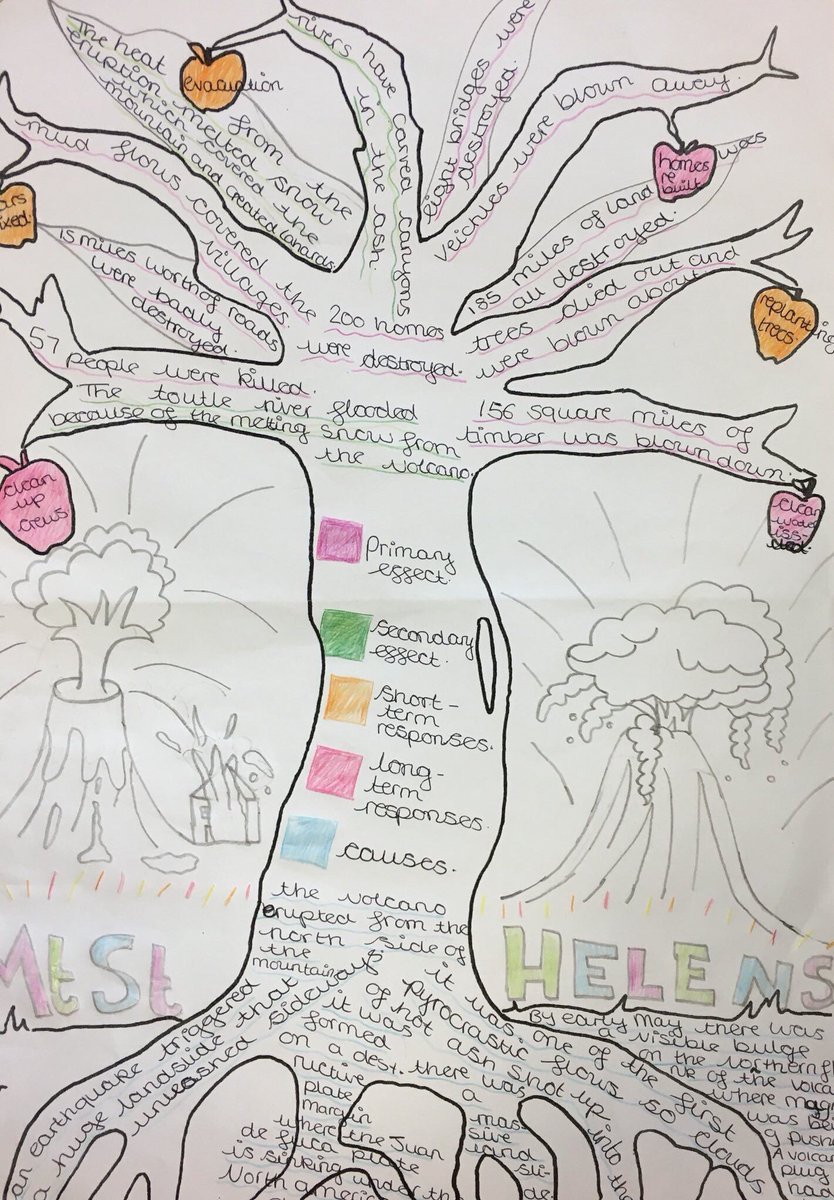 The heat from the
eruption melted snow
which covered the
mountain and created lahards
evacuation
rivers have carved canyons
in the ash.
eight bridges were
destroyed.
veichles were blown away.
mud flows covered the
villages.
homes
re
built
185 miles of land was
all destroyed.
15 miles worth of roads
were badly
destroyed.
200 homes
were destroyed.
trees died out and
were blown about
replanting
trees.
57 people were killed.
The toutle river flooded
because of the melting snow from
the volcano.
156 square miles of
timber was blown down.
clean
up
crews
Primary
effect.
secondary
effect.
short-
term
responses.
long-
term
responses.
causes.
Mt St HELENS
the volcano
erupted from the
north side of
the
mountain
an earthquake triggered
a huge landslide that
unleashed sideways
it was
formed
on a dest
ructive
plate
margin
where the Juan
de fuca plate
is sinking under the
North america
it was one of the first
pyrocrastic flows so clouds
of hot ash shot up into the
there was
a
mas-
sive
land
sli-
de
By early may there was
a visible bulge
on the northern fl
nk of the volca
where mag
was be
g push
A volcan
plug
had